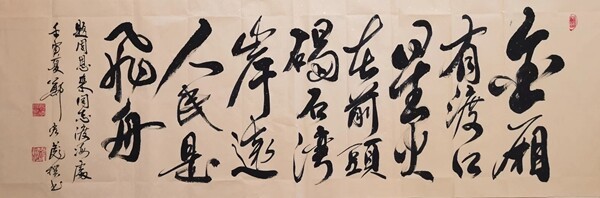 金厢
有渡口
星火
在前頭
碣石湾
岸遠
人民是
飛舟
題周恩来同志渡海處
壬寅夏鄭彪撰书